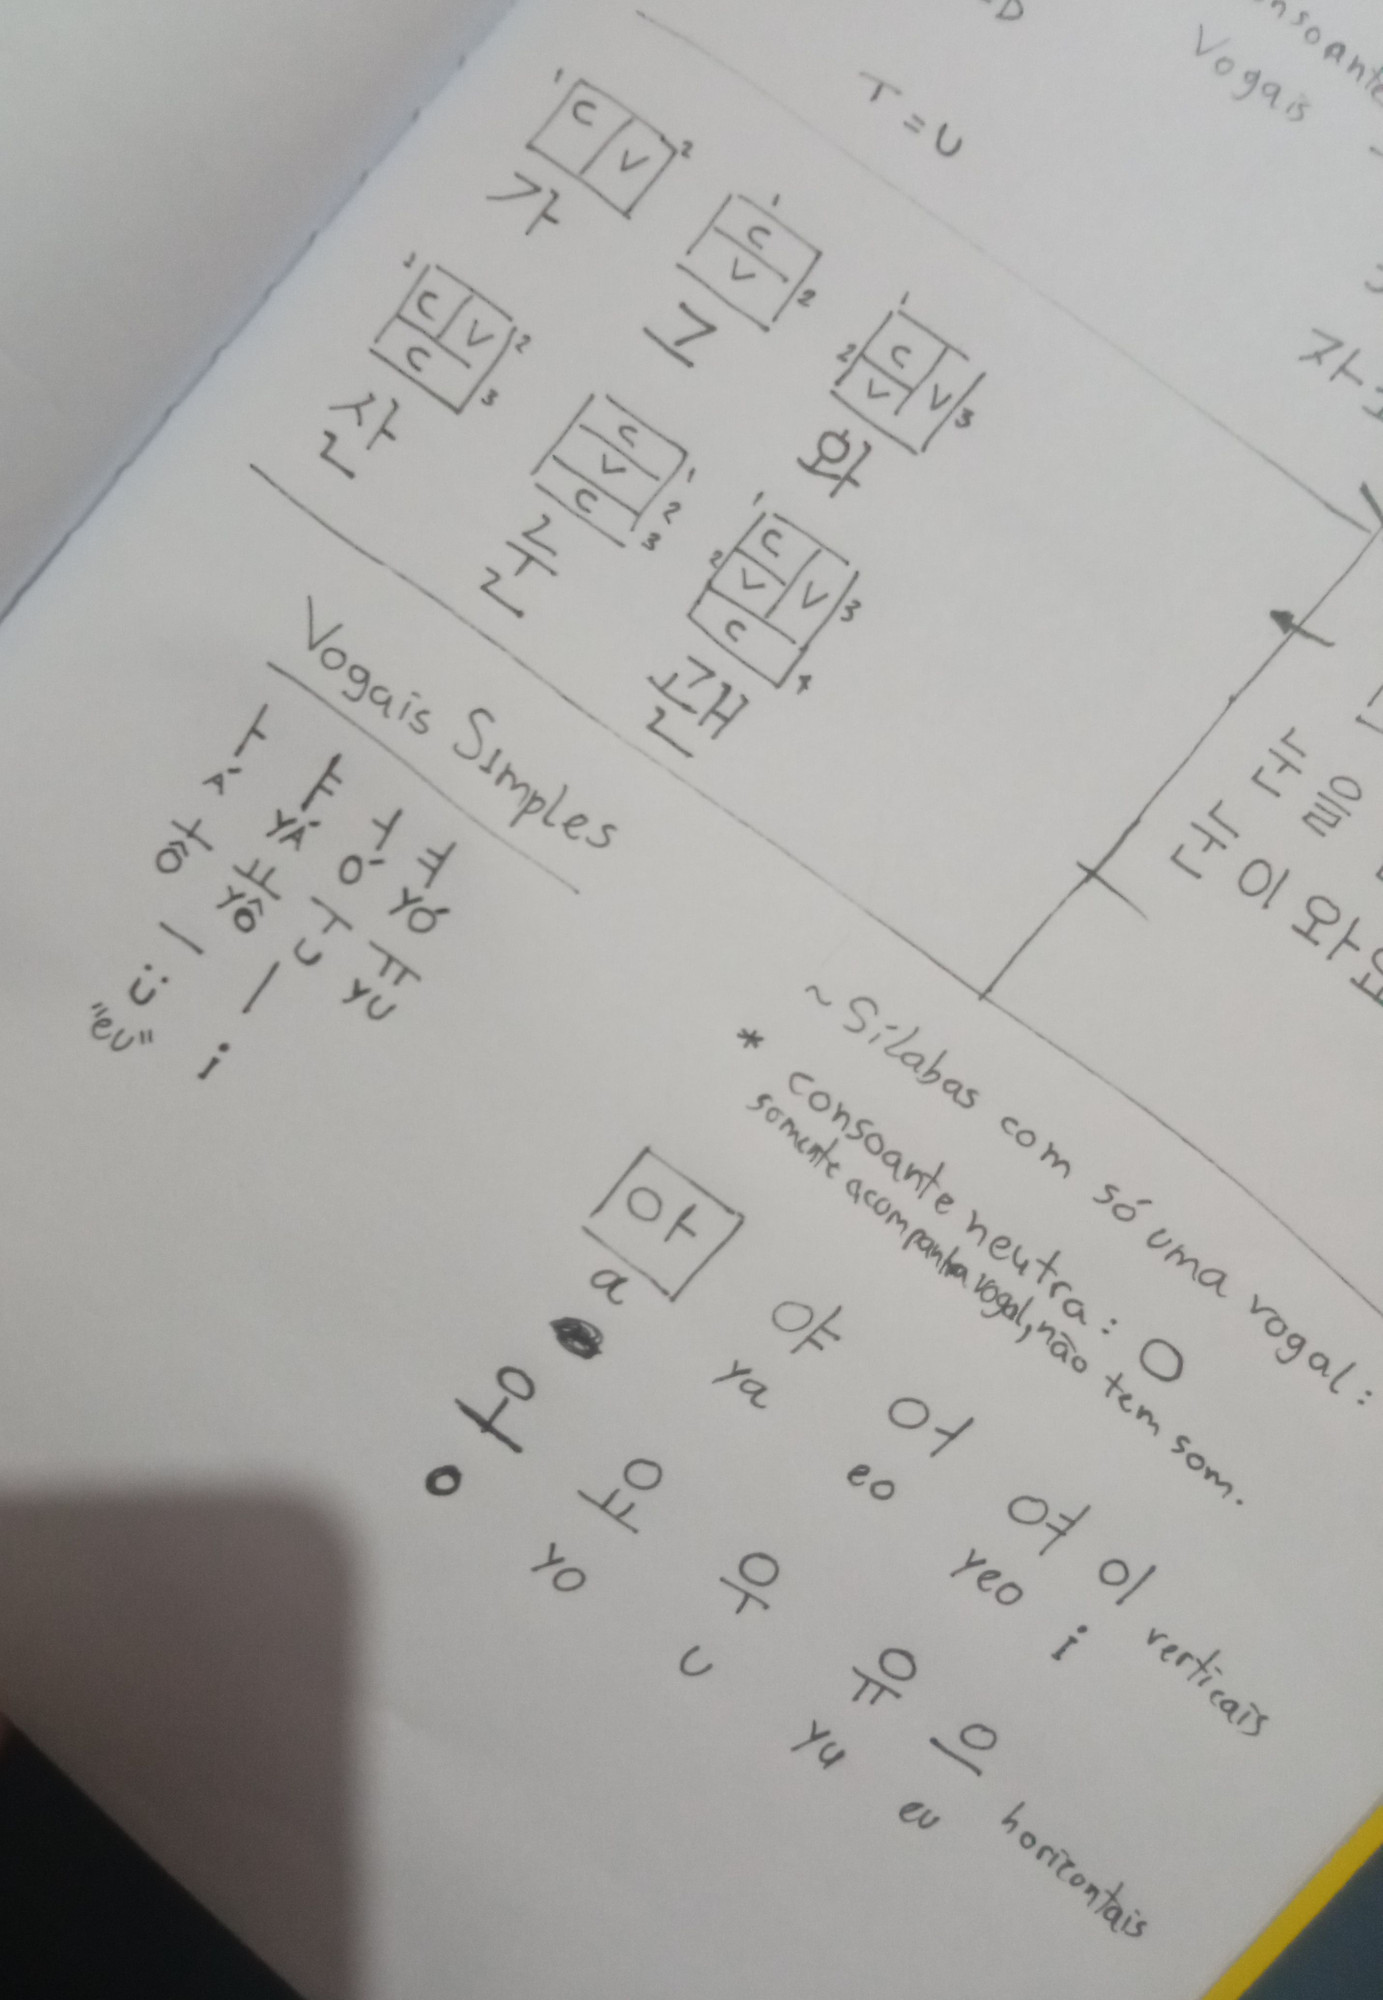 Vogais
ㅜ = U
1 C V 2
가
1 C V 2
그
1 C 2 V V 3
와
1 C V 2 C 3
산
C 1 V 2 C 3
눈
1 C 2 V V 3 C 4
괜
Vogais Simples
ㅏ ㅑ ㅓ ㅕ
Á YÁ Ó YÓ
ㅗ ㅛ ㅜ ㅠ
Ô YÔ U YU
ㅡ ㅣ
Ü i
"eu"
눈 눈을
눈이 와요
~ Sílabas com só uma vogal:
* consoante neutra: O
somente acompanha vogal, não tem som.
아 야 어 여 이 verticais
a ya eo yeo i
오 요 우 유 으 horizontais
o yo u yu eu